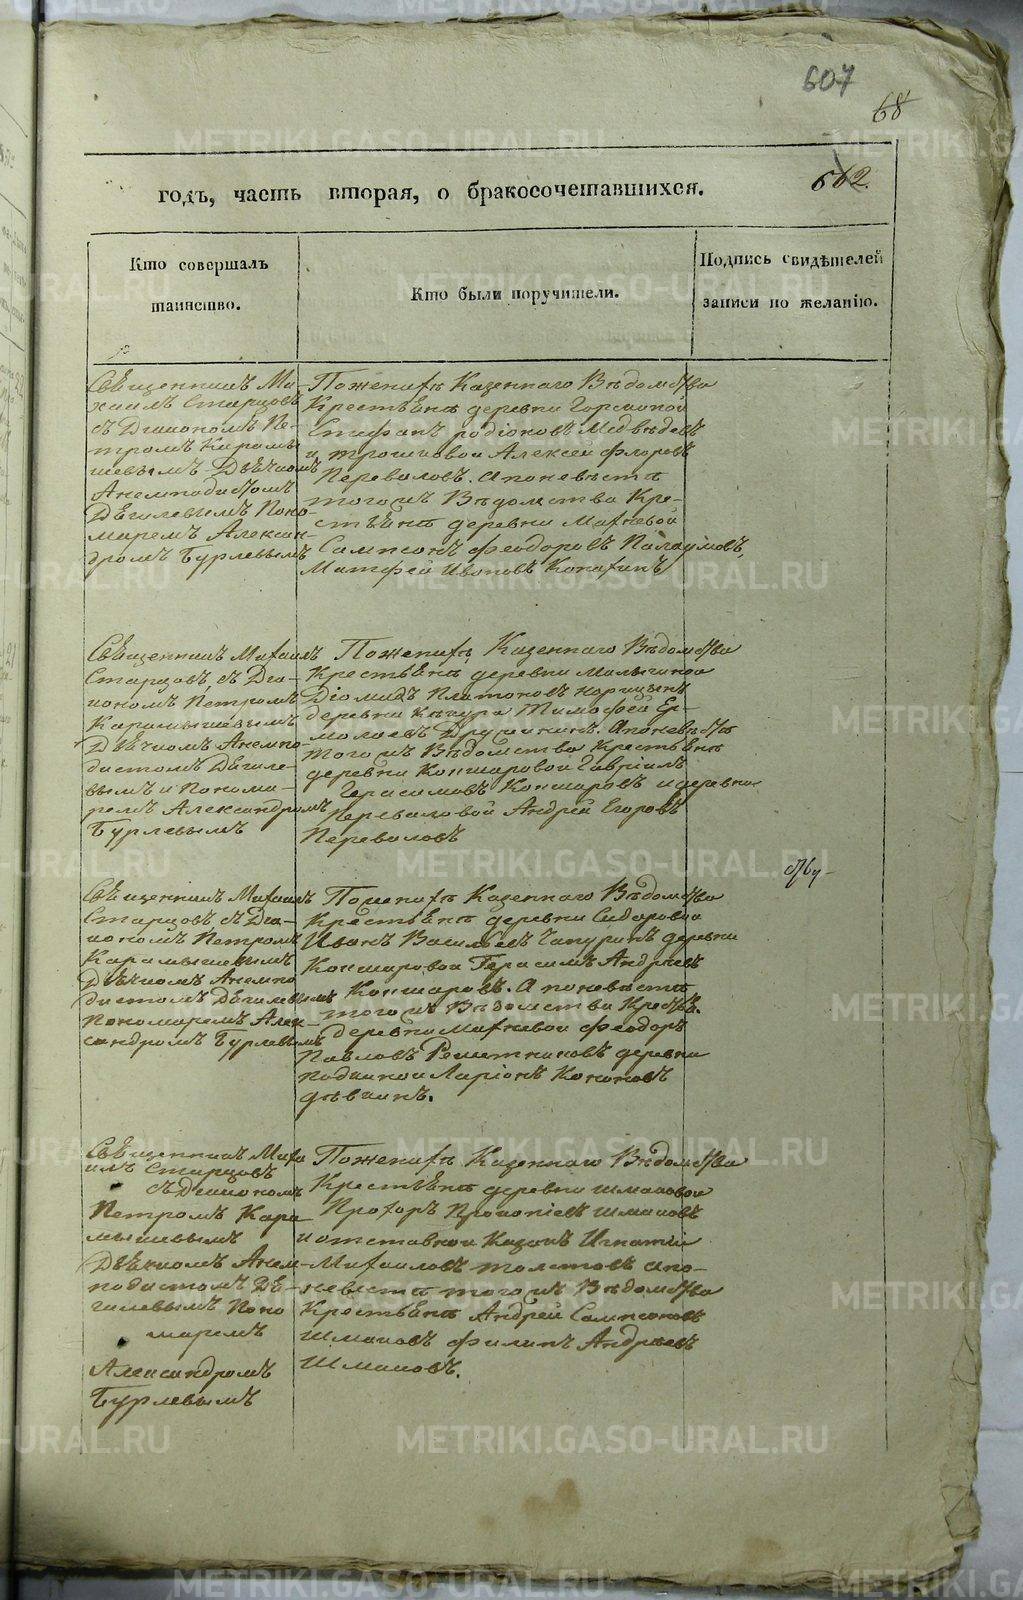 607
68
годъ, часть вторая, о бракосочетавшихся.
602.
Кто совершалъ
таинство.
Кто были поручители.
Подпись свидѣтелей
записи по желанію.
Священникъ Ми-
хаилъ Старцовъ
съ Діакономъ Пе-
тромъ Карамы-
шевымъ Дьячкомъ
Анемподистомъ
Дягилевымъ Поно-
маремъ Алексан-
дромъ Бурлевымъ
По женихѣ Казеннаго Вѣдомства
Крестьяне деревни
Стефанъ родіоновъ Медвѣдевъ
и Алексей Флоровъ
Переваловъ. а по невѣсте
того жъ Вѣдомства Кре-
стьяне деревни Махневой
Сампсонъ Феодоровъ
Матфей Ивановъ
Священникъ Михаилъ
Старцовъ, съ Діа-
кономъ Петромъ
Карамышевымъ
Дьячкомъ Анемпо-
дистомъ Дягиле-
вымъ и Понома-
ремъ Александромъ
Бурлевымъ
По женихѣ, Казеннаго Вѣдомства
Крестьяне деревни
Діомидъ Платоновъ
деревни Тимофей Ер-
молаевъ а по невѣсте
того жъ Вѣдомства Крестьяне
деревни Коншаровой Гавріилъ
Герасимовъ Коншаровъ и деревни
Переваловой Андрей Егоровъ
Переваловъ
Священникъ Михаилъ
Старцовъ съ Діа-
кономъ Петромъ
Карамышевымъ
Дьячкомъ Анемпо
дистомъ Дягилевымъ
Пономаремъ Алек-
сандромъ Бурлевымъ
По женихѣ Казеннаго Вѣдомства
Крестьяне деревни Сидоровой
Иванъ Васильевъ Чапуринъ деревни
Коншаровой Герасимъ Андреевъ
Коншаровъ. А по невѣсте
того жъ Вѣдомства Крестья.
деревни Махневой Феодоръ
Павловъ Решетниковъ деревни
Ларіонъ Кононовъ
Священникъ Миха
илъ Старцовъ
съ Діакономъ
Петромъ Кара
мышевымъ
Дьячкомъ Анем-
подистомъ Дя-
гилевымъ Поно
маремъ
Александромъ
Бурлевымъ
По женихѣ Казеннаго Вѣдомства
Крестьяне деревни Шмаковой
Прохоръ Прокопіевъ Шмаковъ
и отставной Казакъ Игнатій
Михаиловъ Толстовъ а по
невѣсте того жъ Вѣдомства
Крестьяне Андрей Сампсоновъ
Шмаковъ Филипъ Андреевъ
Шмаковъ.
METRIKI.GASO-URAL.RU